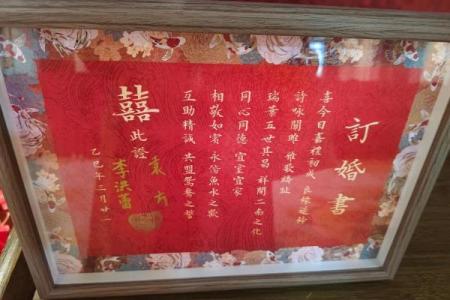 訂婚書
喜今日嘉禮初成 良緣遂締
詩咏關雎 雅歌麟趾
瑞葉五世其昌 祥開二南之化
同心同德 宜室宜家
相敬如賓 永諧魚水之歡
互助精誠 共盟鴛鴦之誓
囍 此證
袁方
李洪蕾
乙巳年二月廿一